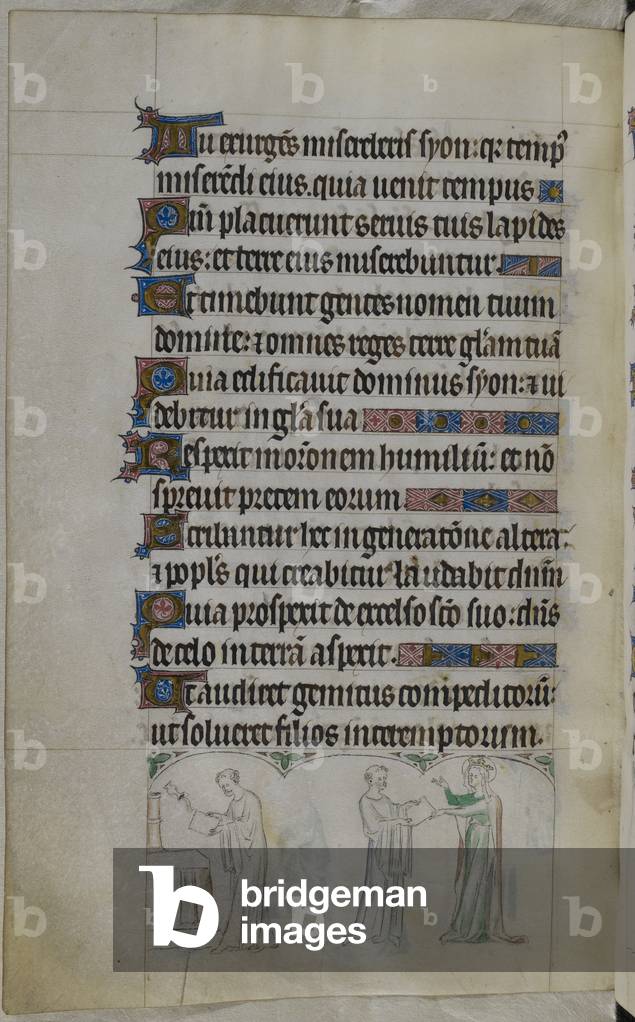 Tu exurgēs misereberis syon: qꝛ temp᷒
miserēdi eius. quia uenit tempus
Qm̄ placuerunt seruis tuis lapides
eius: et terre eius miserebuntur.
Et timebunt gentes nomen tuum
domine: ⁊ omnes reges terre gl̄am tuā
Quia edificauit dominus syon: ⁊ ui
debitur in gl̄a sua
Respexit in orōnem humiliū: et nō
spreuit precem eorum
Scribantur hec in generatōne altera:
⁊ popl̄s qui creabitur laudabit dnm̄
Quia prospexit de excelso sc̄o suo: dn̄s
de celo in terrā aspexit.
Ut audiret gemitus compeditorū:
ut solueret filios interemptorum.
b bridgeman
images